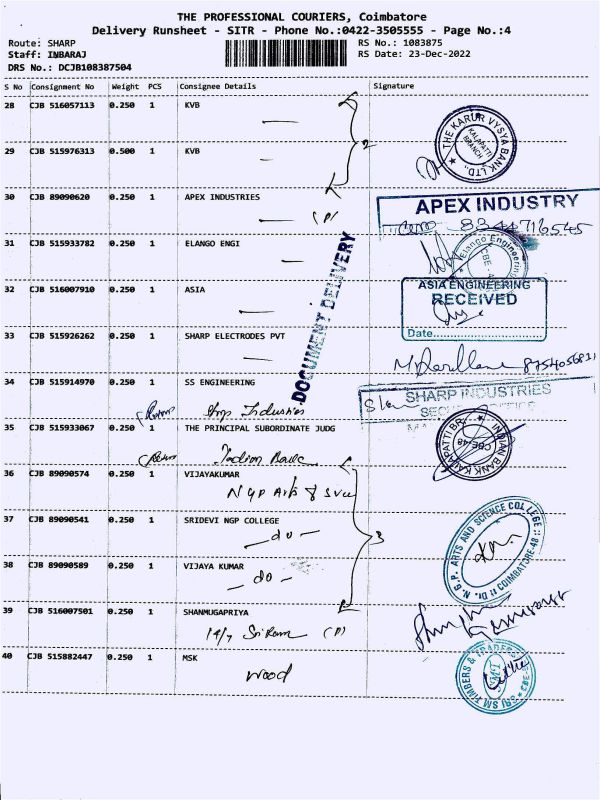 THE PROFESSIONAL COURIERS, Coimbatore
Delivery Runsheet - SITR - Phone No.:0422-3505555 - Page No.:4
Route: SHARP RS No.: 1083875
Staff: INBARAJ RS Date: 23-Dec-2022
DRS No.: DCJB108387504
S No Consignment No Weight PCS Consignee Details Signature
28 CJB 516057113 0.250 1 KVB
THE KARUR VYSYA BANK LTD., KALAPATTI BRANCH
29 CJB 515976313 0.500 1 KVB
2
30 CJB 89090620 0.250 1 APEX INDUSTRIES
(P)
APEX INDUSTRY
8344716545
31 CJB 515933782 0.250 1 ELANGO ENGI
Elango Engineering
DOCUMENT DELIVERY
32 CJB 516007910 0.250 1 ASIA
ASIA ENGINEERING
RECEIVED
Date
33 CJB 515926262 0.250 1 SHARP ELECTRODES PVT
34 CJB 515914970 0.250 1 SS ENGINEERING
Return Industries
SHARP INDUSTRIES
35 CJB 515933067 0.250 1 THE PRINCIPAL SUBORDINATE JUDG
Return Indian Bank
INDIAN BANK KALAPATTI BR. CBE-48
36 CJB 89090574 0.250 1 VIJAYAKUMAR
NGP Arts &
37 CJB 89090541 0.250 1 SRIDEVI NGP COLLEGE
- do -
3
N.G.P. ARTS AND SCIENCE COLLEGE COIMBATORE-48
38 CJB 89090589 0.250 1 VIJAYA KUMAR
- do -
39 CJB 516007501 0.250 1 SHANMUGAPRIYA
14/7 Sri Ram (P)
40 CJB 515882447 0.250 1 MSK
Wood
SRI SM TIMBERS & TRADERS